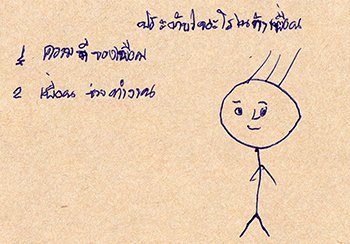 ประทับใจอะไรในตัวเพื่อน
1 ความดีของเพื่อน
2 เพื่อน ช่วยทำงาน